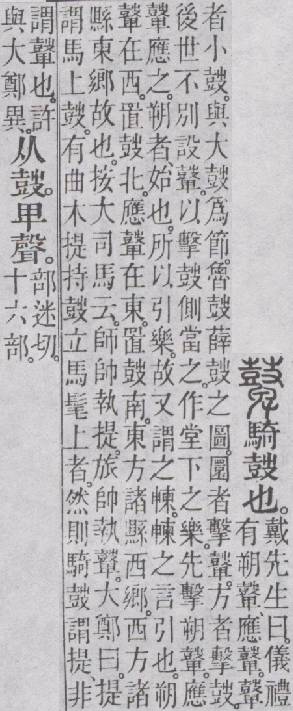 鼙騎鼔也。
戴先生曰。儀禮
有朔鼙、應鼙。鼙
者小鼔。與大鼔爲節。魯鼔薛鼔之圖。圜者擊鼙。方者擊鼔。
後世不別設鼙。以擊鼔側當之。作堂下之樂。先擊朔鼙。應
鼙應之。朔者、始也。所以引樂。故又謂之㯥。㯥之言引也。朔
鼙在西。置鼔北。應鼙在東。置鼔南。東方諸縣西鄉。西方諸
縣東鄉故也。按大司馬云。師帥執提。旅帥執鼙。大鄭曰。提
謂馬上鼔。有曲木提持鼔立馬髦上者。然則騎鼔謂提、非
謂鼙也。許
與大鄭異。
从鼔。卑聲。
部迷切。
十六部。